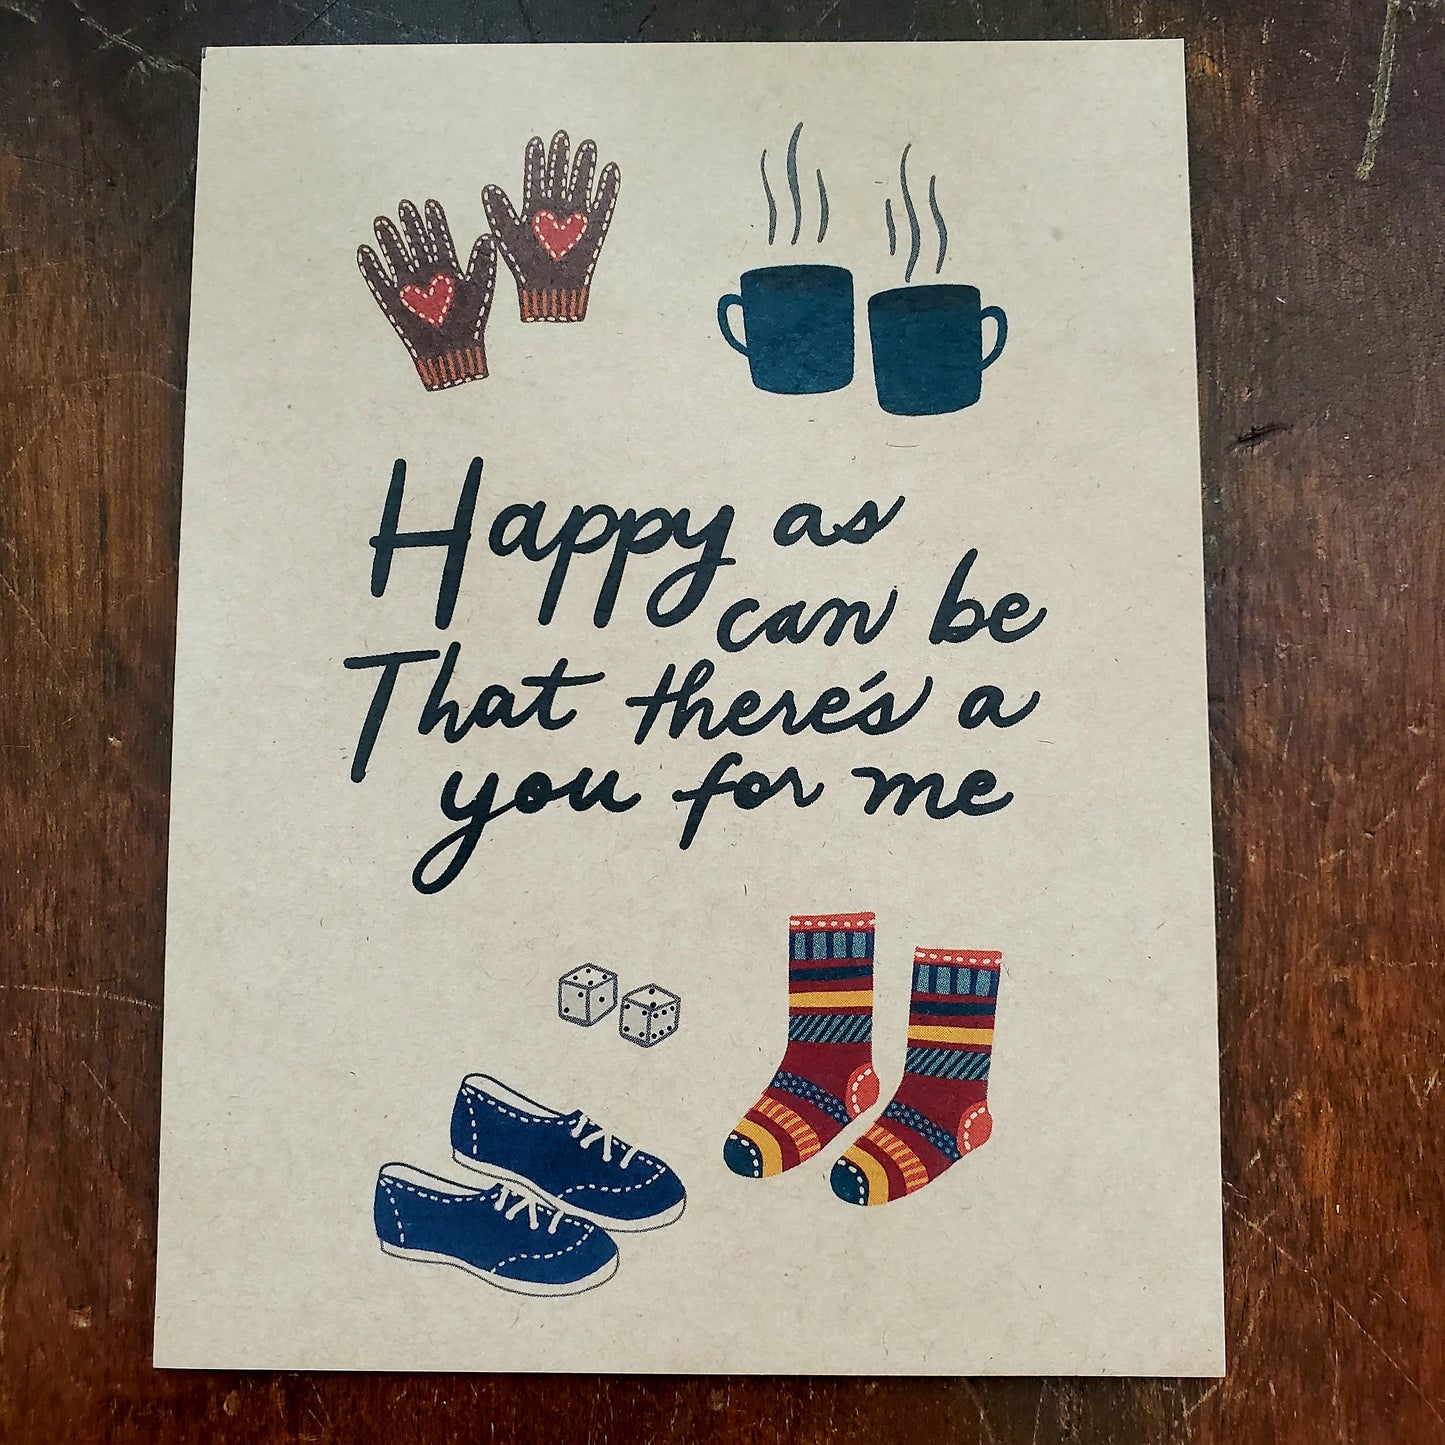 Happy as
can be
That there's a
you for me